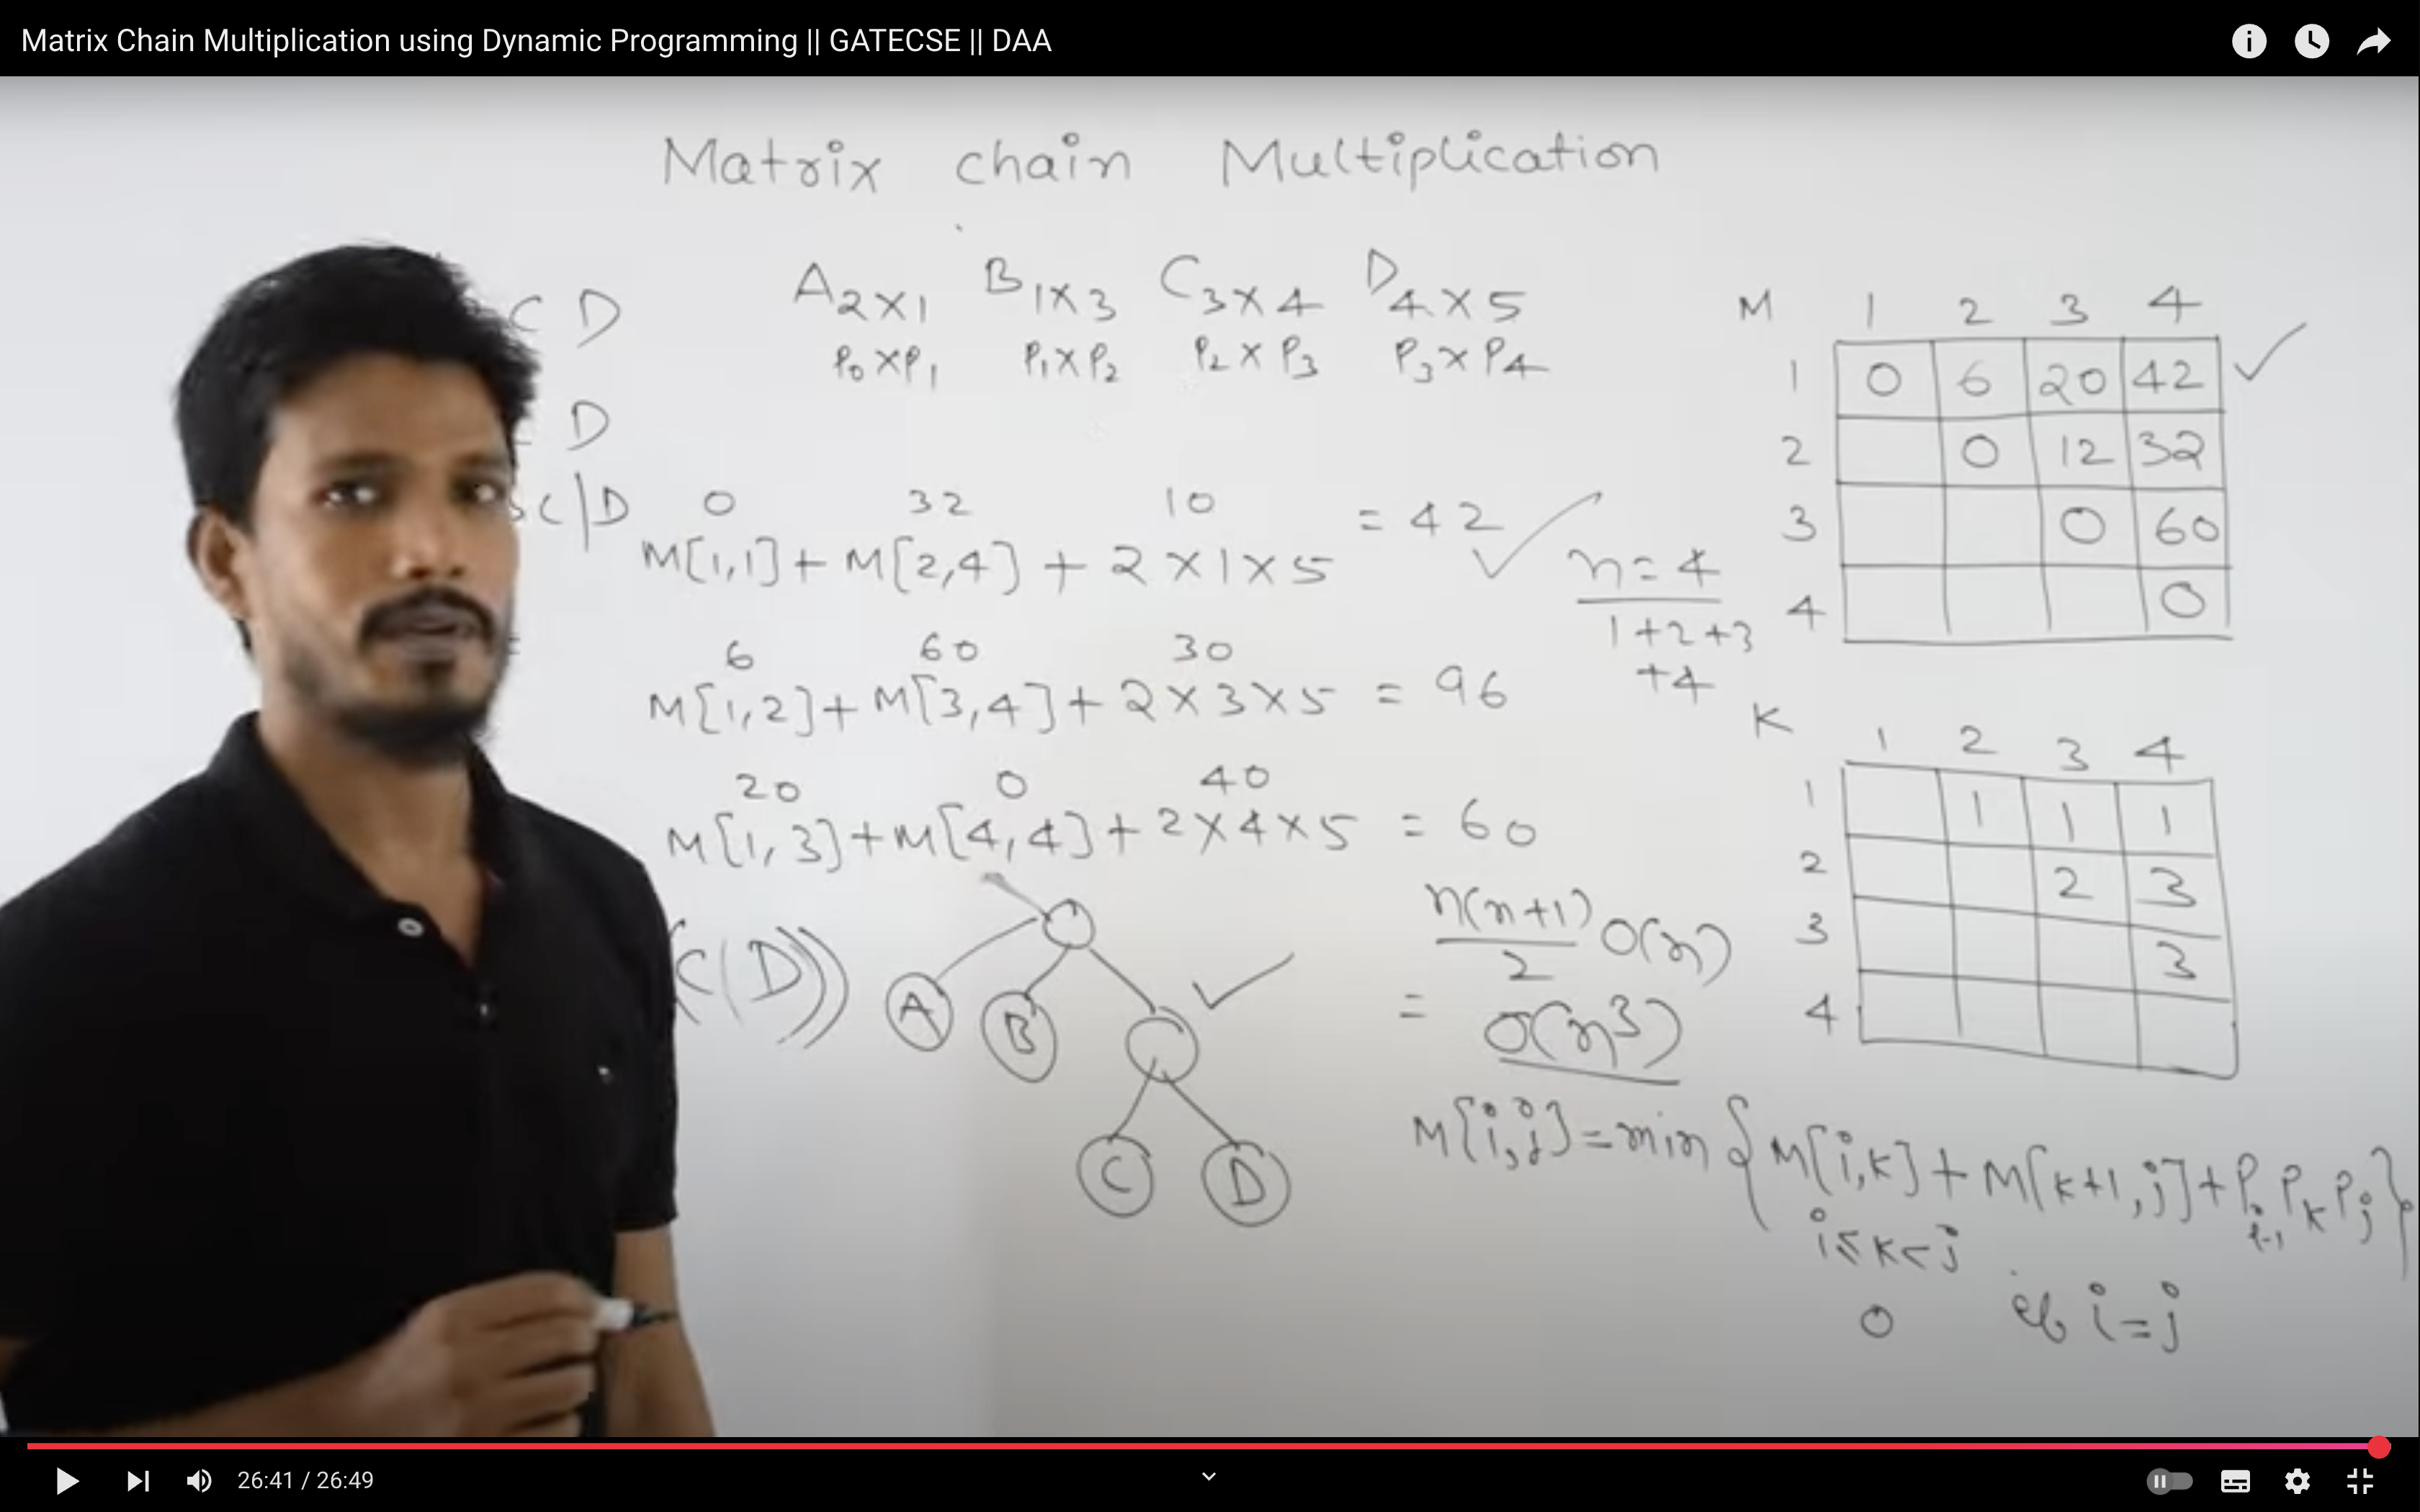 Matrix Chain Multiplication using Dynamic Programming || GATECSE || DAA
Matrix chain Multiplication
C D
A₂ₓ₁ B₁ₓ₃ C₃ₓ₄ D₄ₓ₅
P₀×P₁ P₁×P₂ P₂×P₃ P₃×P₄
D
C|D
0 32 10
M[1,1]+M[2,4]+2×1×5 = 42
6 60 30
M[1,2]+M[3,4]+2×3×5 = 96
20 0 40
M[1,3]+M[4,4]+2×4×5 = 60
(C(D))
A B
C D
n=4
1+2+3
+4
n(n+1)/2 O(n)
= O(n³)
M 1 2 3 4
1 0 6 20 42
2 0 12 32
3 0 60
4 0
K 1 2 3 4
1 1 1 1
2 2 3
3 3
4
M[i,j]=min{M[i,k]+M[k+1,j]+Pᵢ₋₁PₖPⱼ}
i≤k<j
0 if i=j
26:41 / 26:49